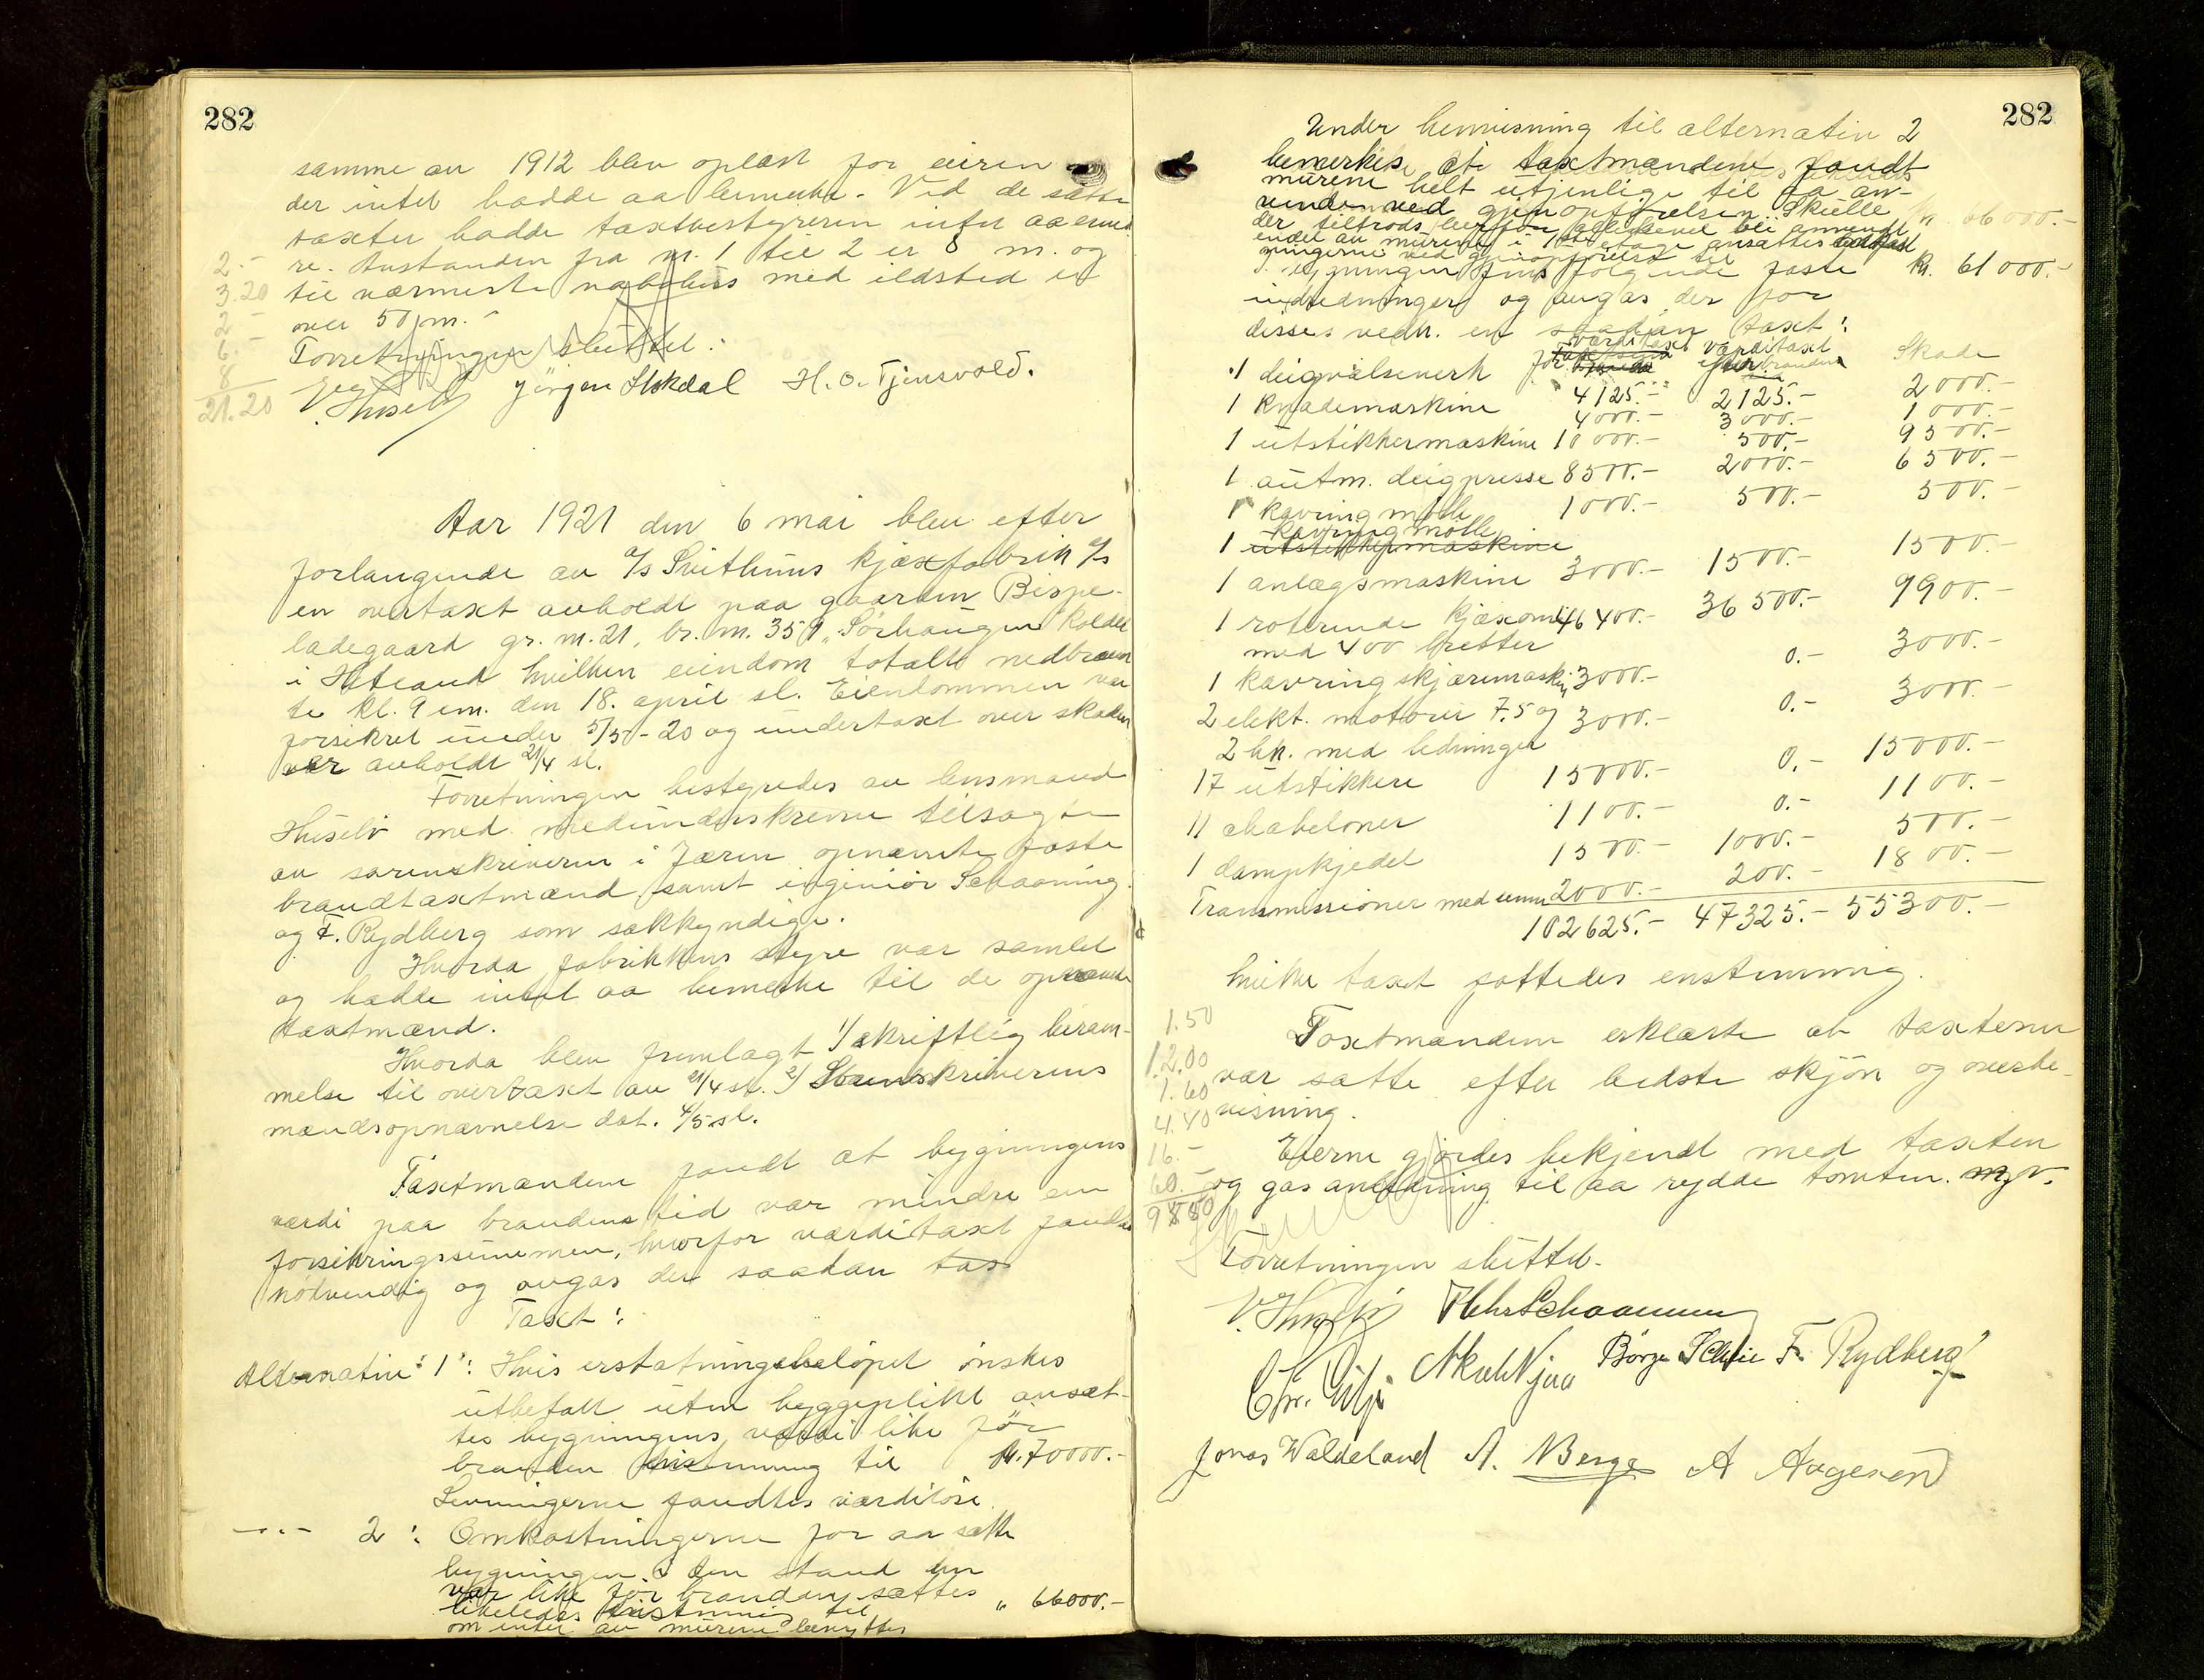 282
samme av 1912 blev oplæst for eieren
der intet hadde aa bemerke. Ved de satte
taxter hadde taxtbestyreren intet aa erind
re. Avstanden fra nr. 1 til 2 er 8 m. og
til nærmeste nabohus med ildsted er
over 50 m.
Forretningen sluttet.
V. Huselø Jørgen Stokdal H. O. Tjensvold.
2.-
3.20
2.-
6.-
8
21.20
Aar 1921 den 6 mai blev efter
forlangende av a/s Svithuns kjæxfabrik a/s
en overtaxt avholdt paa gaarden Bispe-
ladegaard gr. nr. 21, br. nr. 359 "Sørhaugen" kaldet
i Hetland hvilken eiendom totalt nedbræn
te kl. 9 em. den 18. april sl. Eiendommen var
forsikret under 5/5-20 og undertaxt over skaden
var avholdt 21/4 sl.
Forretningen bestyredes av lensmand
Huselø med medunderskrevne tilsagte
av sorenskriveren i Jæren opnævnte faste
brandtaxtmænd samt ingeniør Schaaning
og F. Rydberg som sakkyndige.
Hvorda fabrikkens styre var samlet
og hadde intet aa bemerke til de opnævnte
taxtmænd.
Hvorda blev fremlagt 1/ skriftlig beram-
melse til overtaxt av 21/4 sl. 2/ Sorenskriverens
mændsopnævnelse dat. 4/5 sl.
Taxtmændene fandt at bygningens
værdi paa brandens tid var mindre en
forsikringssummen, hvorfor værditaxt fandtes
nødvendig og avgas der saadan
Taxt:
Alternativ "1": Hvis erstatningsbeløpet ønskes
utbetalt uten byggeplikt ansæt-
tes bygningens værdi like før
branden enstemmig til kr. 70000.-
Levningerne fandtes værdiløse.
-"- 2: Omkostningerne for aa sætte
bygningen i den stand den
var like før branden sættes
likeledes enstemmig til " 66000.-
om intet av murene benyttes
282
Under henvisning til alternativ 2
bemerkes at taxtmændene fandt
murene helt utjenlige til aa an-
vendes ved gjenopførelsen. Skulde
der tiltrods herfor allikevel bli anvendt
endel av murene i 1ste etage ansættes omkost
ningerne ved gjenopførelse til kr. 61000.-
I bygningen fins følgende faste
indredninger og avgas der for
disses vedk. en saadan taxt:
værditaxt før branden værditaxt efter branden Skade
1 deigvalseverk 4125.- 2125.- 2000.-
1 knademaskine 4000.- 3000.- 1000.-
1 utstikkermaskine 10000.- 500.- 9500.-
1 autm. deigpresse 8500.- 2000.- 6500.-
1 kavringmølle 1000.- 500.- 500.-
1 utstikkermaskine kavringmølle
1 anlægsmaskine 3000.- 1500.- 1500.-
1 roterende kjæxovn 46400.- 36500.- 9900.-
med 400 bretter
1 kavringskjæremaskin 3000.- 0.- 3000.-
2 elekt. motorer 7.5 og 3000.- 0.- 3000.-
2 hk. med ledninger
17 utstikkere 15000.- 0.- 15000.-
11 chabeloner 1100.- 0.- 1100.-
1 dampkjedel 1500.- 1000.- 500.-
Transmissioner med remmer 2000.- 200.- 1800.-
102625.- 47325.- 55300.-
hvilke taxt fattedes enstemmig.
Taxtmændene erklærte at taxterne
var satte efter bedste skjøn og overbe-
visning.
Eierne gjordes bekjendt med taxten
og gas anledning til aa rydde tomten. m. v.
1.50
12.00
1.60
4.40
16.-
60.-
Forretningen sluttet.
V. Huselø Schaanning
Chr. Lilje Børge Schie Fr. Rydberg
Jonas Waldeland A. Berge A Aagesen